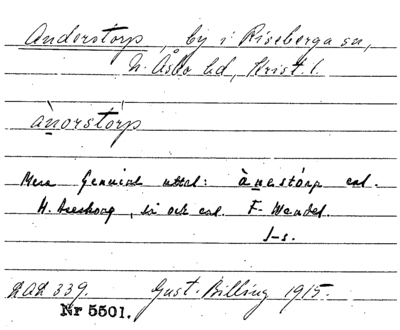 Anderstorp, by i Riseberga sn,
N. Åsbo hd, Krist. l.
ànorstórp
Mera genuint uttal: ànestórp enl.
H. , så och enl. F. Wendel.
J-s.
LAL 339. Gust. Billing 1915.
Nr 5501.